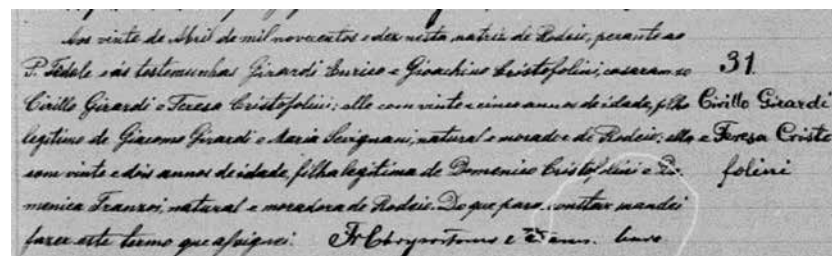 Aos vinte de Abril de mil novecentos e dez nesta matriz de Rodeio, perante ao
P. Fidele e ás testemunhas Girardi Enrico e Gioachino Cristofolini, casaram-se
Cirillo Girardi e Teresa Cristofolini: elle com vinte e cinco annos de idade, filho
legitimo de Giacomo Girardi e Maria Sevignani, natural e morador de Rodeio; ella
com vinte e dois annos de idade, filha legitima de Domenico Cristofolini e Do-
menica Franzoi, natural e moradora de Rodeio. Do que para constar mandei
fazer este termo que assignei. Fr Chrysostomo
31.
Cirillo Girardi
e Teresa Cristo
folini